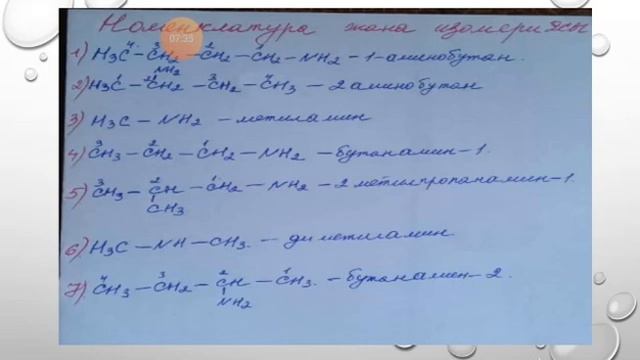 Номенклатура жана изомериясы
07:35
1) H₃C⁴ - CH₂³ - CH₂² - CH₂¹ - NH₂ - 1-аминобутан.
NH₂
2) H₃C¹ - CH₂² - CH₂³ - CH₃⁴ - 2 аминобутан
3) H₃C - NH₂ - метиламин
4) CH₃³ - CH₂² - CH₂¹ - NH₂ - бутанамин-1.
5) CH₃³ - CH² - CH₂¹ - NH₂ - 2 метилпропанамин-1
CH₃
6) H₃C - NH - CH₃. - диметиламин
7) CH₃⁴ - CH₂³ - CH² - CH₃¹. - бутанамин-2.
NH₂